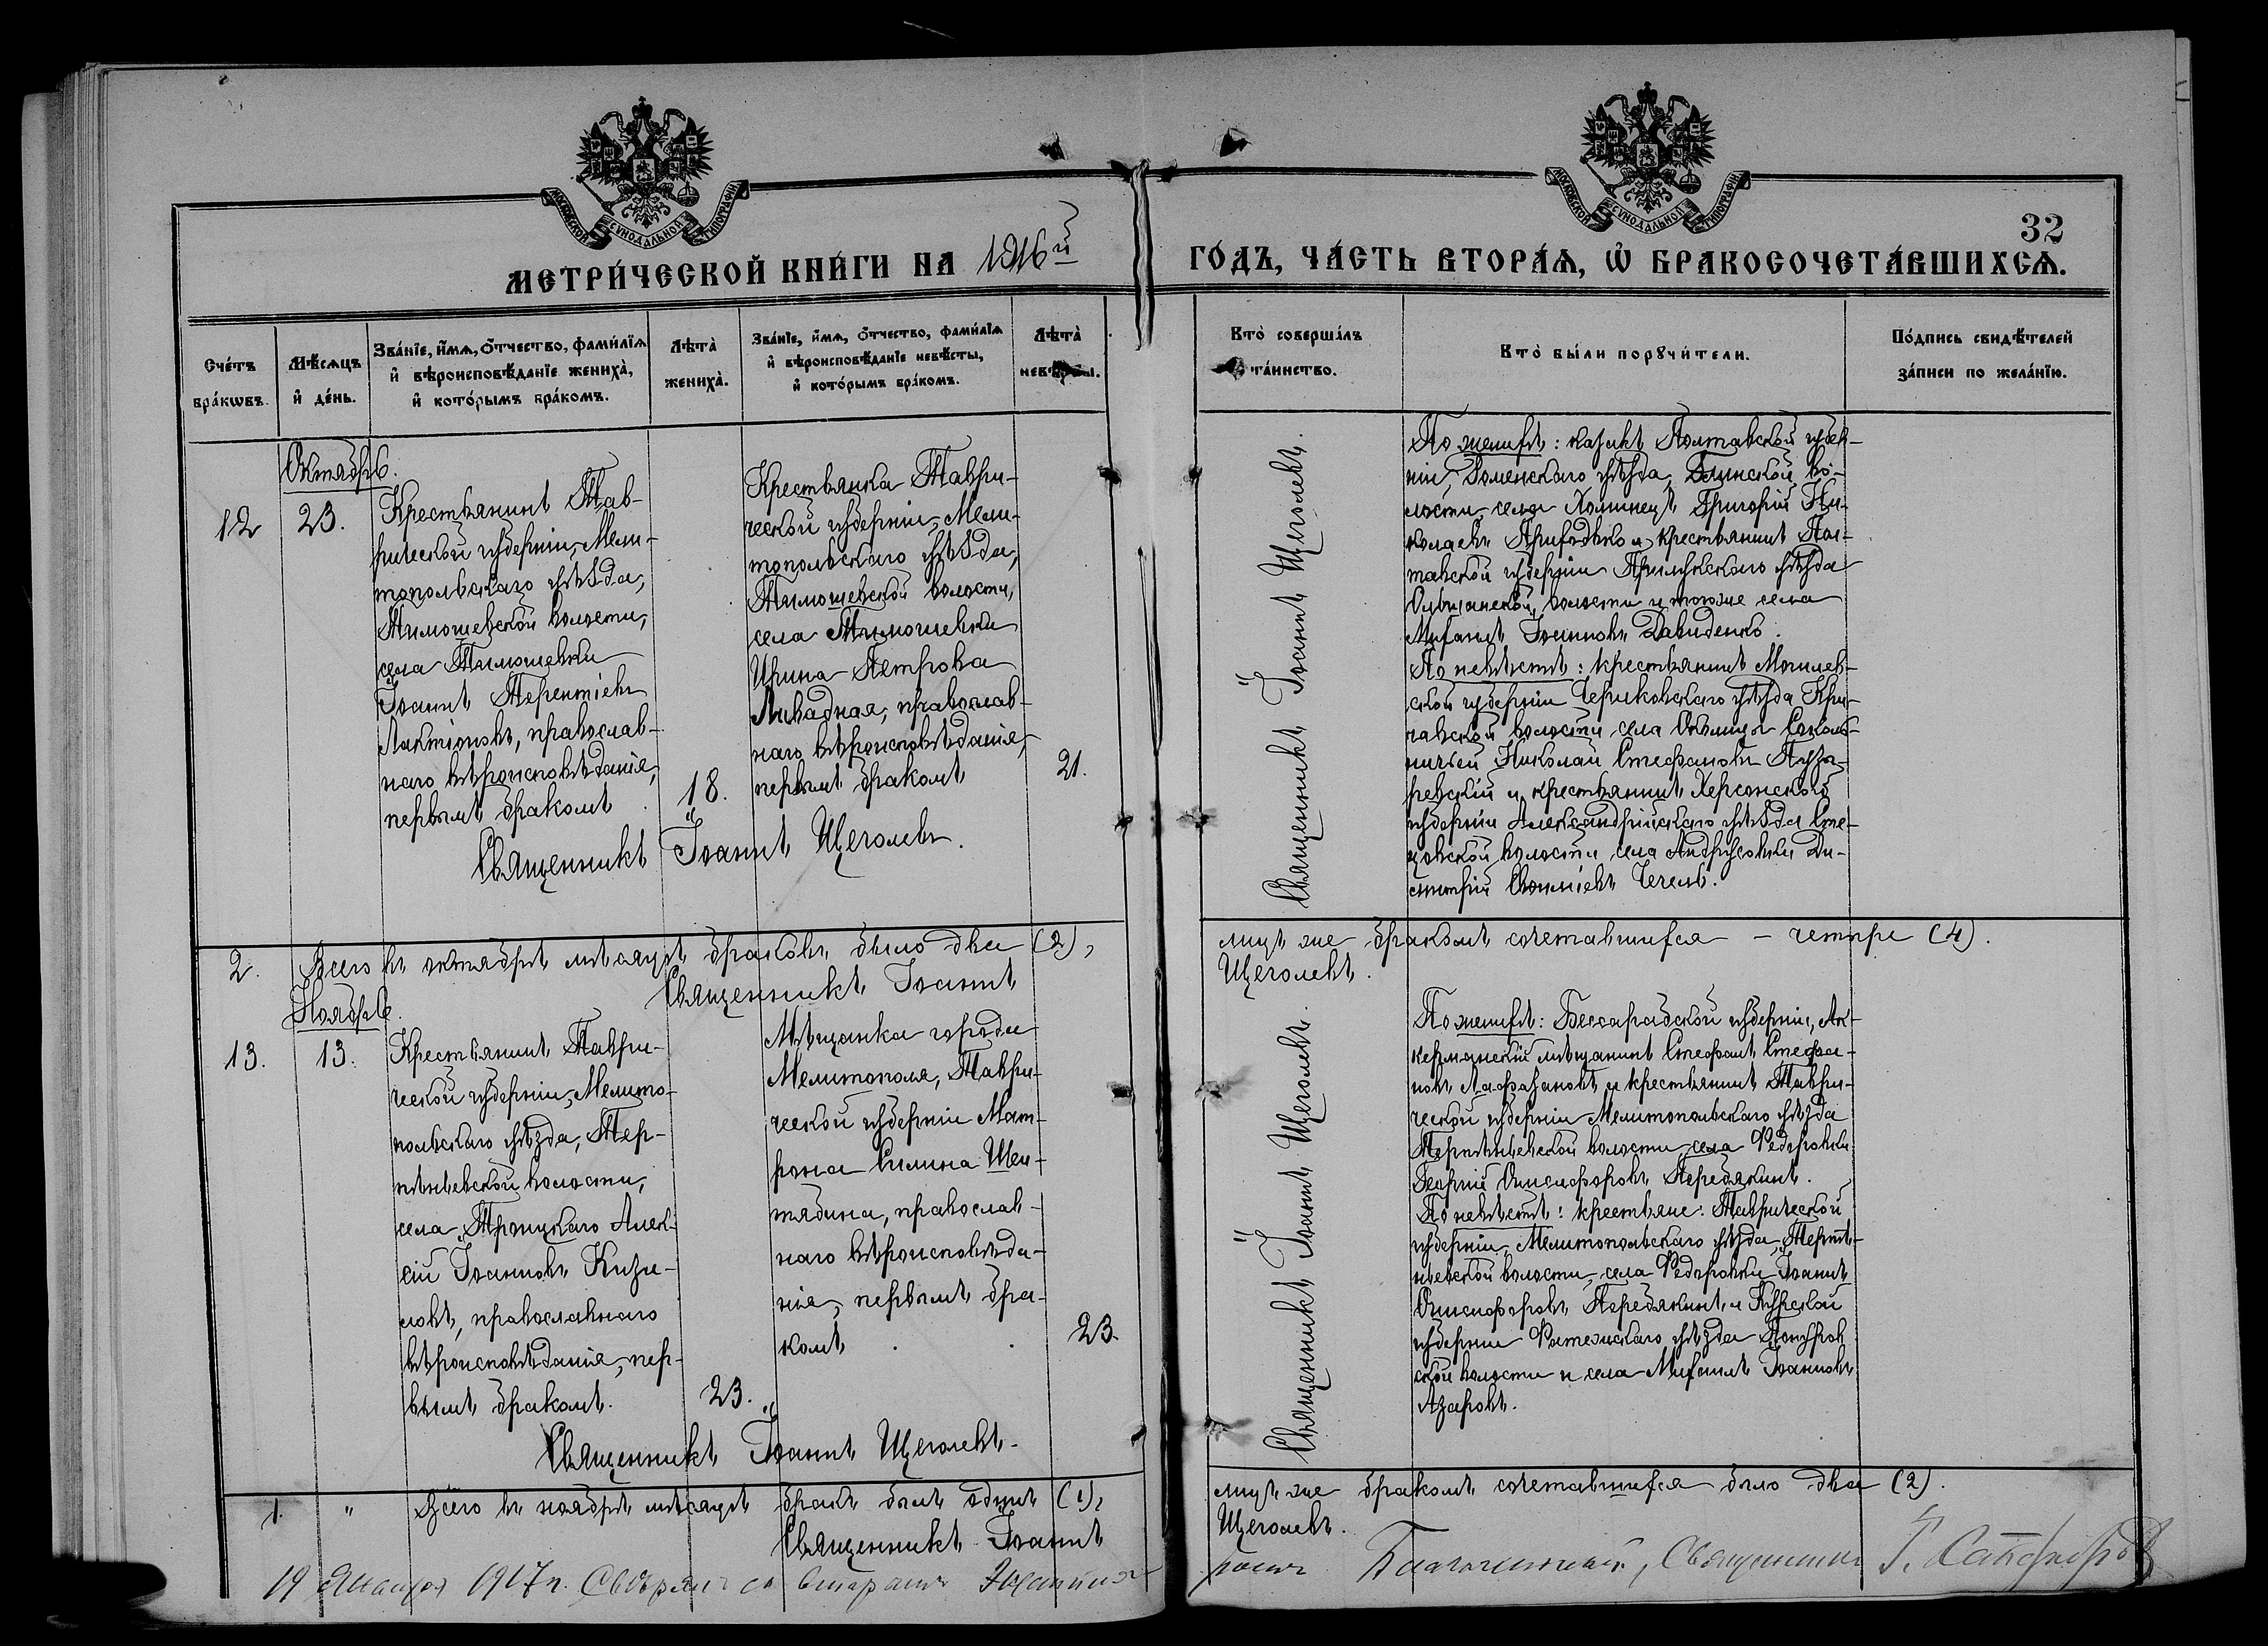 МОСКОВСКОЙ СѴНОДАЛЬНОЙ ТИПОГРАФІИ
МОСКОВСКОЙ СѴНОДАЛЬНОЙ ТИПОГРАФІИ
32
МЕТРИ́ЧЕСКОЙ КНИ́ГИ НА 1916й
ГО́ДЪ, ЧА́СТЬ ВТОРА́Ѧ, Ѡ҆ БРАКОСОЧЕТА́ВШИХСѦ.
Сче́тъ бра́кѡвъ.
Мѣ́сѧцъ и҆ де́нь.
Зва́нїе, и҆́мѧ, ѻ҆́тчество, фами́лїѧ
и҆ вѣроисповѣ́данїе жениха̀,
и҆ кото́рымъ бра́комъ.
Лѣта̀ жениха̀.
Зва́нїе, и҆́мѧ, ѻ҆́тчество, фами́лїѧ
и҆ вѣроисповѣ́данїе невѣ́сты,
и҆ кото́рымъ бра́комъ.
Лѣта̀ невѣ́сты.
Кто̀ соверша́лъ та́инство.
Кто̀ бы́ли порꙋчи́тели.
По́дпись свидѣ́телей
за́писи по жела́нїю.
Октябрь.
12
23.
Крестьянинъ Тав-
рической губерніи, Мели-
топольскаго уѣзда,
Тимошевской волости,
села Тимошевки
Іоаннъ Терентіевъ
Лактіоновъ, православ-
наго вѣроисповѣданія,
первымъ бракомъ
18.
Крестьянка Таври-
ческой губерніи, Мели-
топольскаго уѣзда,
Тимошевской волости,
села Тимошевки
Ирина Петрова
Ливадная, православ-
наго вѣроисповѣданія,
первымъ бракомъ
21.
Священникъ Іоаннъ Щеголевъ.
Священникъ Іоаннъ Щеголевъ.
По женихѣ: казакъ Полтавской губер-
ніи, Роменскаго уѣзда, Глинской во-
лости, села Хоминецъ Григорій Ни-
колаевъ Приходько и крестьянинъ Пол-
тавской губерніи Прилукскаго уѣзда
волости и тогоже села
Михаилъ Іоанновъ Давиденко.
По невѣстѣ: крестьянинъ Могилев-
ской губерніи Чериковскаго уѣзда Кри-
чевской волости, села
Николай Стефановъ
и крестьянинъ Херсонской
губерніи Александрійскаго уѣзда
волости села Андрусовки Ди-
митрій
2.
Всего въ октябрѣ мѣсяцѣ браковъ было два (2),
лицъ же бракомъ сочетавшихся – четыре (4).
Священникъ Іоаннъ
Щеголевъ.
Ноябрь.
13.
13.
Крестьянинъ Таври-
ческой губерніи, Мелито-
польскаго уѣзда, Тер-
пѣньевской волости,
села Троицкаго Алек-
сій Іоанновъ Кизи-
ловъ, православнаго
вѣроисповѣданія, пер-
вымъ бракомъ.
23.
Мѣщанка города
Мелитополя, Таври-
ческой губерніи Мат-
рона Силина Шен-
тябина, православ-
наго вѣроисповѣда-
нія, первымъ бра-
комъ
23.
Священникъ Іоаннъ Щеголевъ.
Священникъ Іоаннъ Щеголевъ.
По женихѣ: Бессарабской губерніи, Ак-
керманскій мѣщанинъ Стефанъ Стефа-
новъ и крестьянинъ Таври-
ческой губерніи Мелитопольскаго уѣзда
Терпѣньевской волости, села Ѳедоровки
Георгій Онисифоровъ Передякинъ.
По невѣстѣ: крестьяне: Таврической
губерніи, Мелитопольскаго уѣзда, Терпѣ-
ньевской волости, села Ѳедоровки Іоаннъ
Онисифоровъ Передякинъ и Курской
губерніи Фатежскаго уѣзда
волости и села Михаилъ Іоанновъ
Азаровъ.
1.
"
Всего въ ноябрѣ мѣсяцѣ бракъ былъ одинъ (1),
лицъ же бракомъ сочетавшихся было два (2).
Священникъ Іоаннъ
Щеголевъ.
19 Января 1917 г. Свѣрялъ со вторымъ экземпля-
ромъ Благочинный, Священникъ